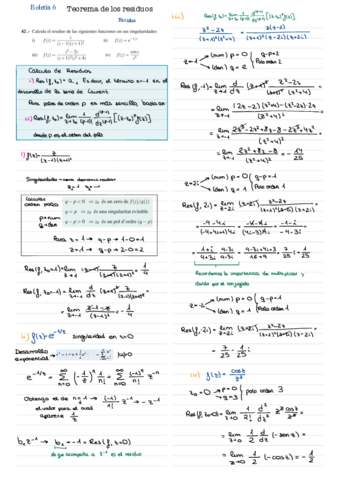 Boletín 6 Teorema de los residuos
Residuo
42.- Calcula el residuo de las siguientes funciones en sus singularidades
i) f(z) = z/((z-1)(z+1)²) ii) f(z) = e^(-1/z)
iii) f(z) = (z²-2z)/((z+1)²(z²+4)) iv) f(z) = cos z/z³
Calculo de Residuos
i) Res(f, z₀) = a₋₁ Es decir, el término n=-1 en el
desarrollo de la serie de Laurent
Para polos de orden p es más sencillo hacerlo con
ii) Res(f, z₀) = lim z→z₀ 1/(p-1)! d^(p-1)/dz^(p-1) [(z-z₀)^p f(z)]
donde p es el orden del polo
i) f(z) = z/((z-1)(z+1)²)
Singularidades → cero denominador
z=1 z=-1
Calcular
orden polos
p = num
q = den
q - p < 0 ⇒ z₀ es un cero de f(z)/g(z)
q - p = 0 ⇒ z₀ es una singularidad evitable
q - p > 0 ⇒ z₀ es un pol d'ordre (q - p)
Para z=1 → q-p → 1-0=1
z=-1 → q-p → 2-0=2
Res(f, z₀=1) = lim z→1 (z-1) z/((z-1)(z+1)²) = 1/4
Res(f, z₀=-1) = lim z→-1 d/dz (z+1)² z/((z-1)(z+1)²) =
= lim z→-1 (z-1-z)/(z-1)² = -1/4
ii) f(z) = e^(-1/z) singularidad en z=0
Desarrollo
exponencial
|z|>0
e^(-1/z) = Σ n=0 ∞ (-1/z)^n 1/n! = Σ n=0 ∞ (-1)^n/n! z^-n
Obtengo el de n=1 → (-1)/1! z^-1 → -z^-1
el valor para el cual
aparece 1/z
b₁ z^-1 → b₁ = -1 = Res(f, z=0)
lo que acompaña a z^-1 es el residuo
iii) Res(f, z₀) = lim z→z₀ 1/(p-1)! d^(p-1)/dz^(p-1) [(z-z₀)^p f(z)]
(z²-2z)/((z+1)²(z²+4)) = (z²-2z)/((z+1)²(z-2i)(z+2i))
z=-1 (num) p=0 q-p=2
(den) q=2 Polo orden 2
Res(f, -1) = lim z→-1 d/dz (z+1)² (z²-2z)/((z+1)²(z²+4)) =
= lim z→-1 ((2z-2)(z²+4)-(z²-2z)2z)/(z²+4)² =
= lim z→-1 (2z³-2z²+8z-8-2z³+4z²)/(z²+4)² =
= lim z→-1 (2z²+8z-8)/(z²+4)² = -14/25
z=2i (num) p=0 q-p=1
(den) q=1 Polo orden 1
Res(f, 2i) = lim z→2i (z-2i) (z²-2z)/((z+1)²(z-2i)(z+2i)) =
= (-4-4i)/((-4+4i+1)4i) = (-4-4i)/((4i-3)4i) = (-1-i)/(-4-3i) =
= (1+i)/(4+3i) · (4-3i)/(4-3i) = (4-3i+4i+3)/(16+9) = 7/25 + 1/25 i
Recordemos la importancia de multiplicar y
dividir por el conjugado
z=-2i (num) p=0 q-p=1
(den) q=1 Polo orden 1
Res(f, -2i) = lim z→-2i (z+2i) (z²-2z)/((z+1)²(z-2i)(z+2i)) =
= 7/25 - 1/25 i
iv) f(z) = cos z/z³
z₀=0 → p=0 q=3 polo orden 3
Res(f, z₀=0) = lim z→0 1/2! d²/dz² z³ cos z/z³ =
= lim z→0 1/2 d/dz (-sen z) =
= lim z→0 1/2 (-cos z) = -1/2